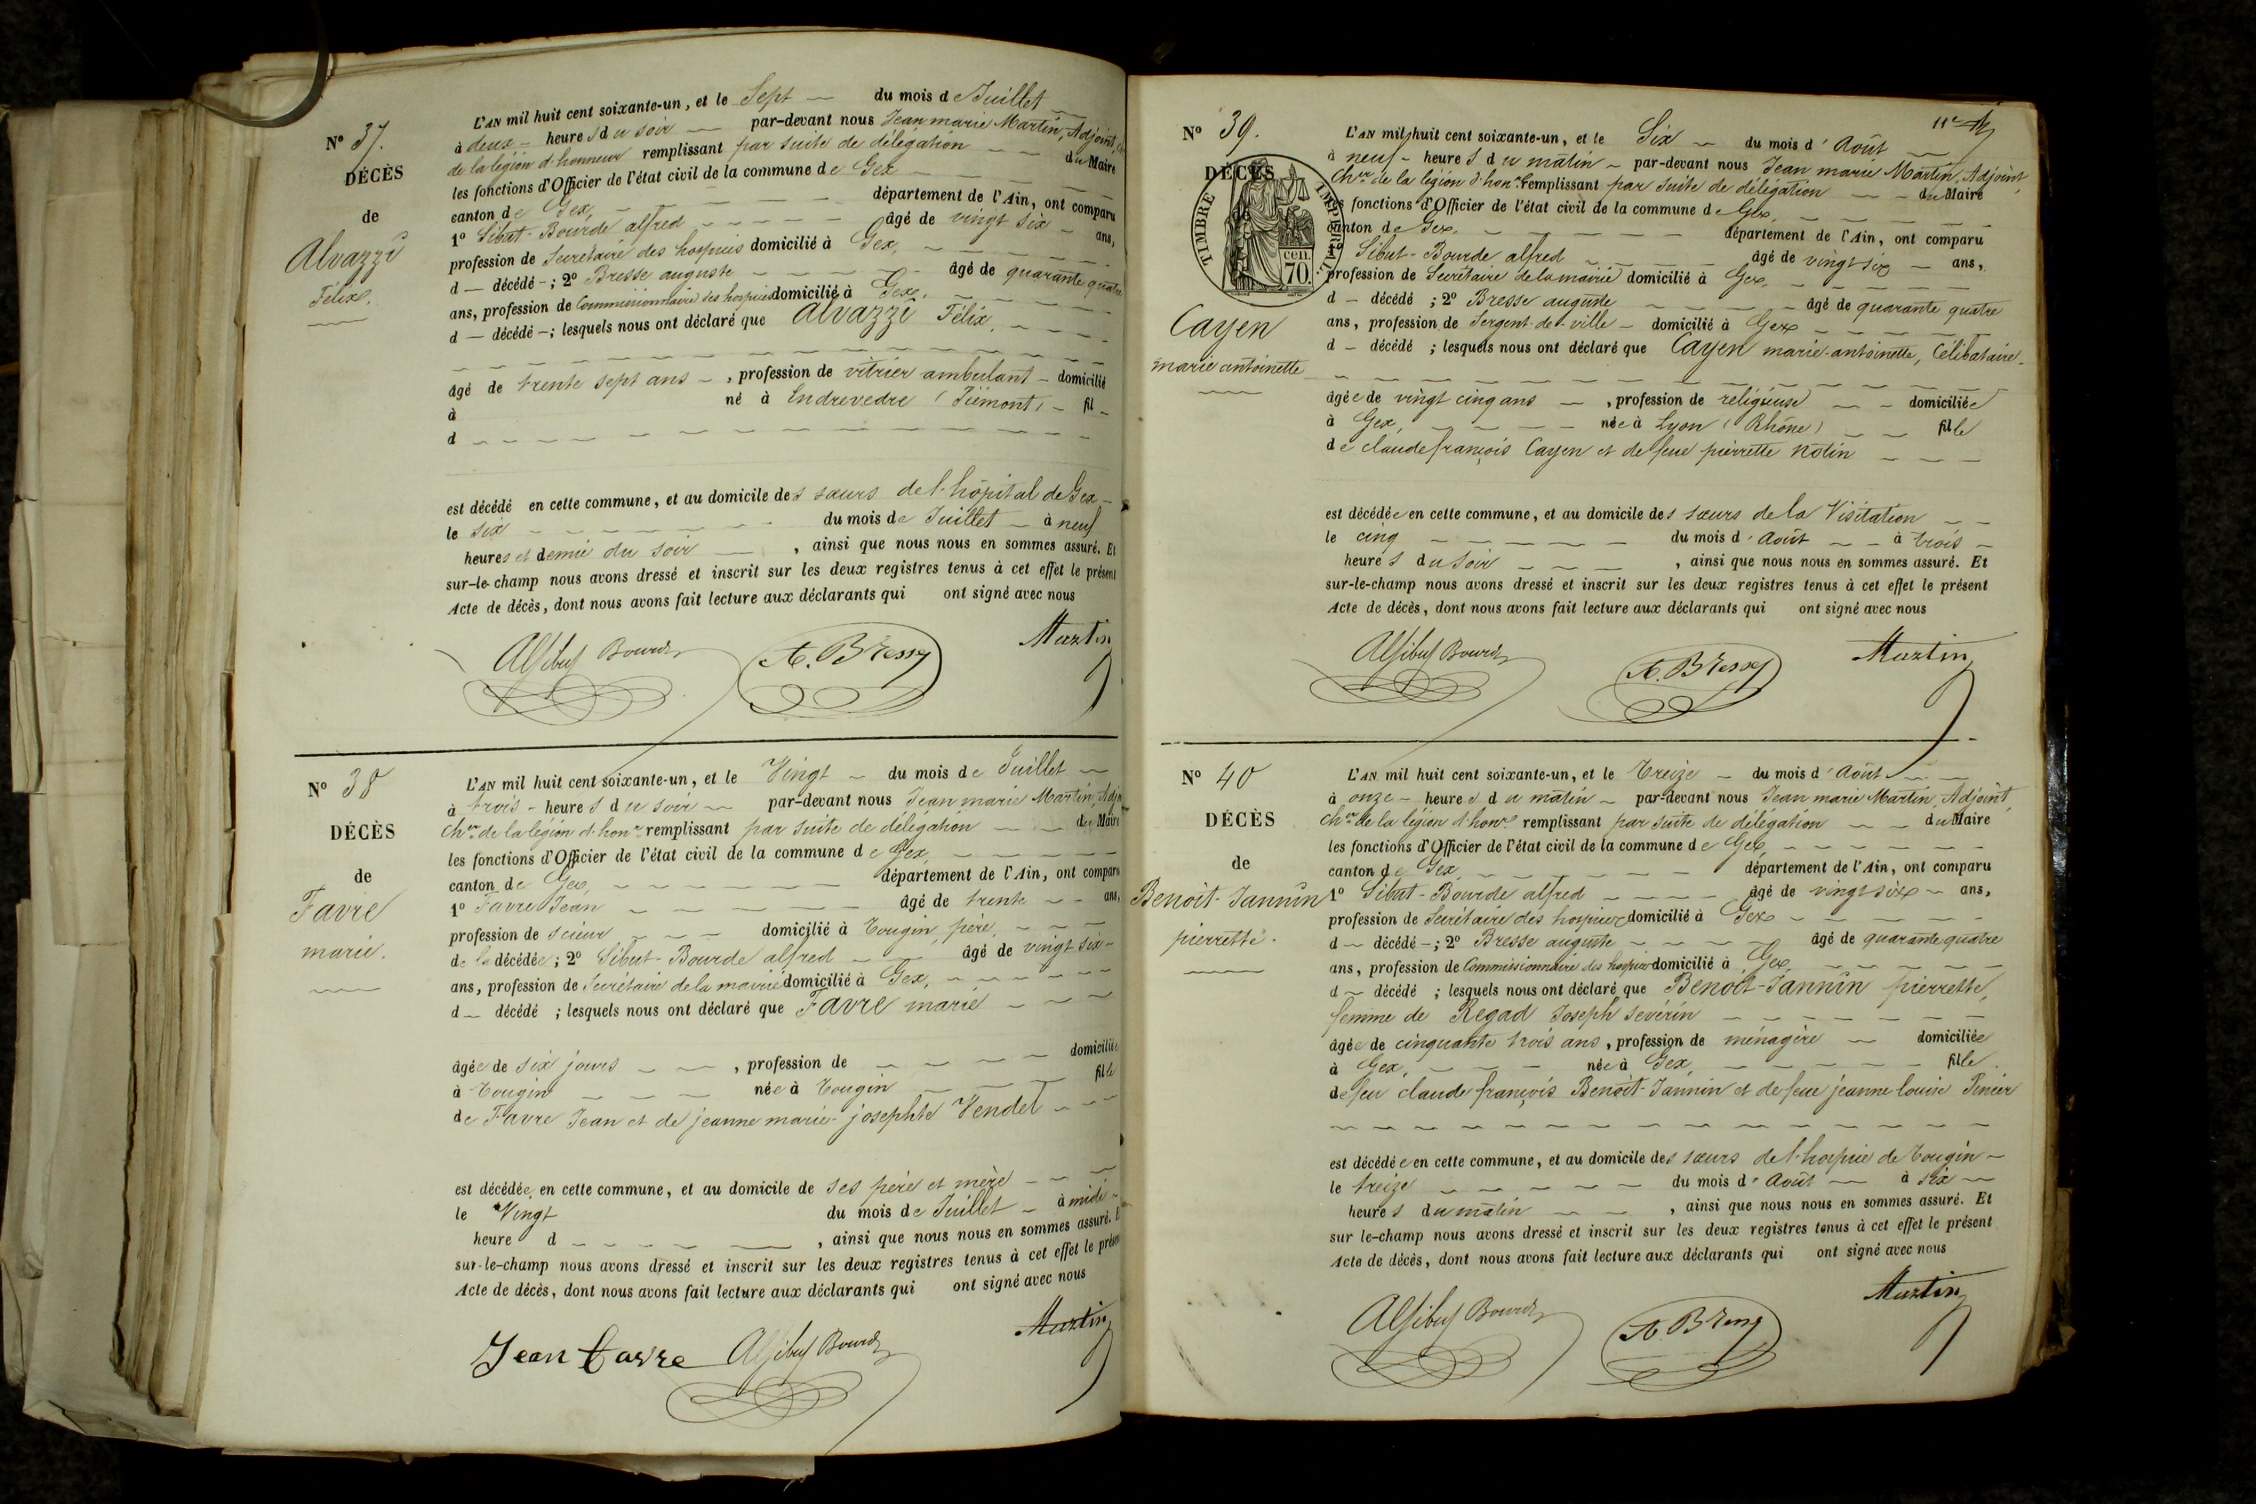 N° 37.
DÉCÈS
de
Alvazzi
Félix.
L'AN mil huit cent soixante-un, et le Sept du mois de Juillet
à deux heures du soir par-devant nous Jean marie Martin, Adjoint,
de la légion d'honneur remplissant par suite de délégation du Maire
les fonctions d'Officier de l'état civil de la commune de Gex
canton de Gex, département de l'Ain, ont comparu
1° Sibut-Bourde alfred âgé de vingt six ans,
profession de Secrétaire des hospices domicilié à Gex,
d décédé ; 2° Bresse auguste âgé de quarante quatre
ans, profession de Commissionnaire des hospices domicilié à Gex.
d décédé ; lesquels nous ont déclaré que Alvazzi Félix,
âgé de trente sept ans, profession de vitrier ambulant domicilié
à né à Endrevedre (Piémont) fil
d
est décédé en cette commune, et au domicile des sœurs de l'hôpital de Gex
le six du mois de Juillet à neuf
heures et demie du soir, ainsi que nous nous en sommes assuré. Et
sur-le-champ nous avons dressé et inscrit sur les deux registres tenus à cet effet le présent
Acte de décès, dont nous avons fait lecture aux déclarants qui ont signé avec nous
Alf Sibut Bourde A. Bresse Martin
N° 38
DÉCÈS
de
Favre
marie.
L'AN mil huit cent soixante-un, et le Vingt du mois de Juillet
à trois heures du soir par-devant nous Jean marie Martin, Adj
Chev. de la légion d'hon. remplissant par suite de délégation du Maire
les fonctions d'Officier de l'état civil de la commune de Gex,
canton de Gex, département de l'Ain, ont comparu
1° Favre Jean âgé de trente ans,
profession de scieur domicilié à Tougin, père,
de la décédée; 2° Sibut-Bourde alfred âgé de vingt six
ans, profession de Secrétaire de la mairie domicilié à Gex,
d décédé ; lesquels nous ont déclaré que Favre marie
âgée de six jours, profession de domiciliée
à Tougin née à Tougin fille
de Favre Jean et de jeanne marie-josephte Vendel
est décédée en cette commune, et au domicile de ses père et mère
le Vingt du mois de Juillet à midi
heure d , ainsi que nous nous en sommes assuré. E
sur-le-champ nous avons dressé et inscrit sur les deux registres tenus à cet effet le présen
Acte de décès, dont nous avons fait lecture aux déclarants qui ont signé avec nous
Jean favre Alf Sibut Bourde Martin
N° 39.
DÉCÈS
de
TIMBRE IMPÉRIAL.
cen.
70.
Cayen
marie antoinette
L'AN mil huit cent soixante-un, et le Six du mois d'Août
à neuf heures du matin par-devant nous Jean marie Martin, Adjoint,
Chev. de la légion d'hon. remplissant par suite de délégation du Maire
les fonctions d'Officier de l'état civil de la commune de Gex,
canton de Gex. département de l'Ain, ont comparu
Sibut-Bourde alfred âgé de vingt six ans,
profession de Secrétaire de la mairie domicilié à Gex,
d décédé ; 2° Bresse auguste âgé de quarante quatre
ans, profession de Sergent-de-ville domicilié à Gex
d décédé ; lesquels nous ont déclaré que Cayen marie-antoinette, Célibataire.
âgée de vingt cinq ans, profession de religieuse domiciliée
à Gex, née à Lyon (Rhône) fille
de claude françois Cayen et de feue pierrette Notin
est décédée en cette commune, et au domicile des sœurs de la Visitation
le cinq du mois d'Août à trois
heures du soir, ainsi que nous nous en sommes assuré. Et
sur-le-champ nous avons dressé et inscrit sur les deux registres tenus à cet effet le présent
Acte de décès, dont nous avons fait lecture aux déclarants qui ont signé avec nous
Alf Sibut Bourde A. Bresse Martin
N° 40
DÉCÈS
de
Benoit-Jannin
pierrette.
L'AN mil huit cent soixante-un, et le Treize du mois d'Août
à onze heures du matin par-devant nous Jean marie Martin, Adjoint,
Chev. de la légion d'hon. remplissant par suite de délégation du Maire
les fonctions d'Officier de l'état civil de la commune de Gex,
canton de Gex, département de l'Ain, ont comparu
1° Sibut-Bourde alfred âgé de vingt six ans,
profession de Secrétaire des hospices domicilié à Gex
d décédé ; 2° Bresse auguste âgé de quarante quatre
ans, profession de Commissionnaire des hospices domicilié à Gex,
d décédé ; lesquels nous ont déclaré que Benoit-Jannin pierrette,
femme de Regad Joseph sévérin
âgée de cinquante trois ans, profession de ménagère domiciliée
à Gex, née à Gex, fille
de feu claude françois Benoit-Jannin et de feue jeanne louise
est décédée en cette commune, et au domicile des sœurs de l'hospice de Tougin
le treize du mois d'Août à six
heures du matin, ainsi que nous nous en sommes assuré. Et
sur le-champ nous avons dressé et inscrit sur les deux registres tenus à cet effet le présent
Acte de décès, dont nous avons fait lecture aux déclarants qui ont signé avec nous
Alf Sibut Bourde A. Bresse Martin